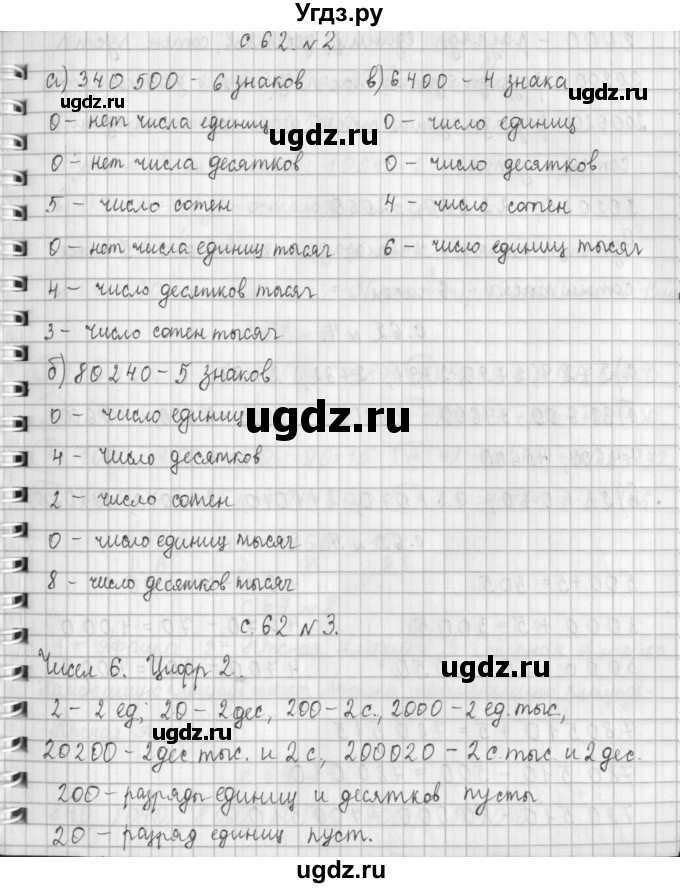 Угдз.ру
с.62. №2
а) 340 500 - 6 знаков
0 - нет числа единиц
0 - нет числа десятков
5 - число сотен
0 - нет числа единиц тысяч
4 - число десятков тысяч
3 - число сотен тысяч
в) 6400 - 4 знака
0 - число единиц
0 - число десятков
4 - число сотен
6 - число единиц тысяч
б) 80240 - 5 знаков
0 - число единиц
4 - число десятков
2 - число сотен
0 - число единиц тысяч
8 - число десятков тысяч
с.62 №3.
Чисел 6. Цифр 2.
2 - 2 ед; 20 - 2 дес, 200 - 2 с., 2000 - 2 ед. тыс,
20200 - 2 дес тыс. и 2 с, 200020 - 2 с. тыс. и 2 дес.
200 - разряды единиц и десятков пусты
20 - разряд единиц пуст.
ugdz.ru
ugdz.ru
ugdz.ru
ugdz.ru
ugdz.ru
ugdz.ru
ugdz.ru
ugdz.ru
ugdz.ru